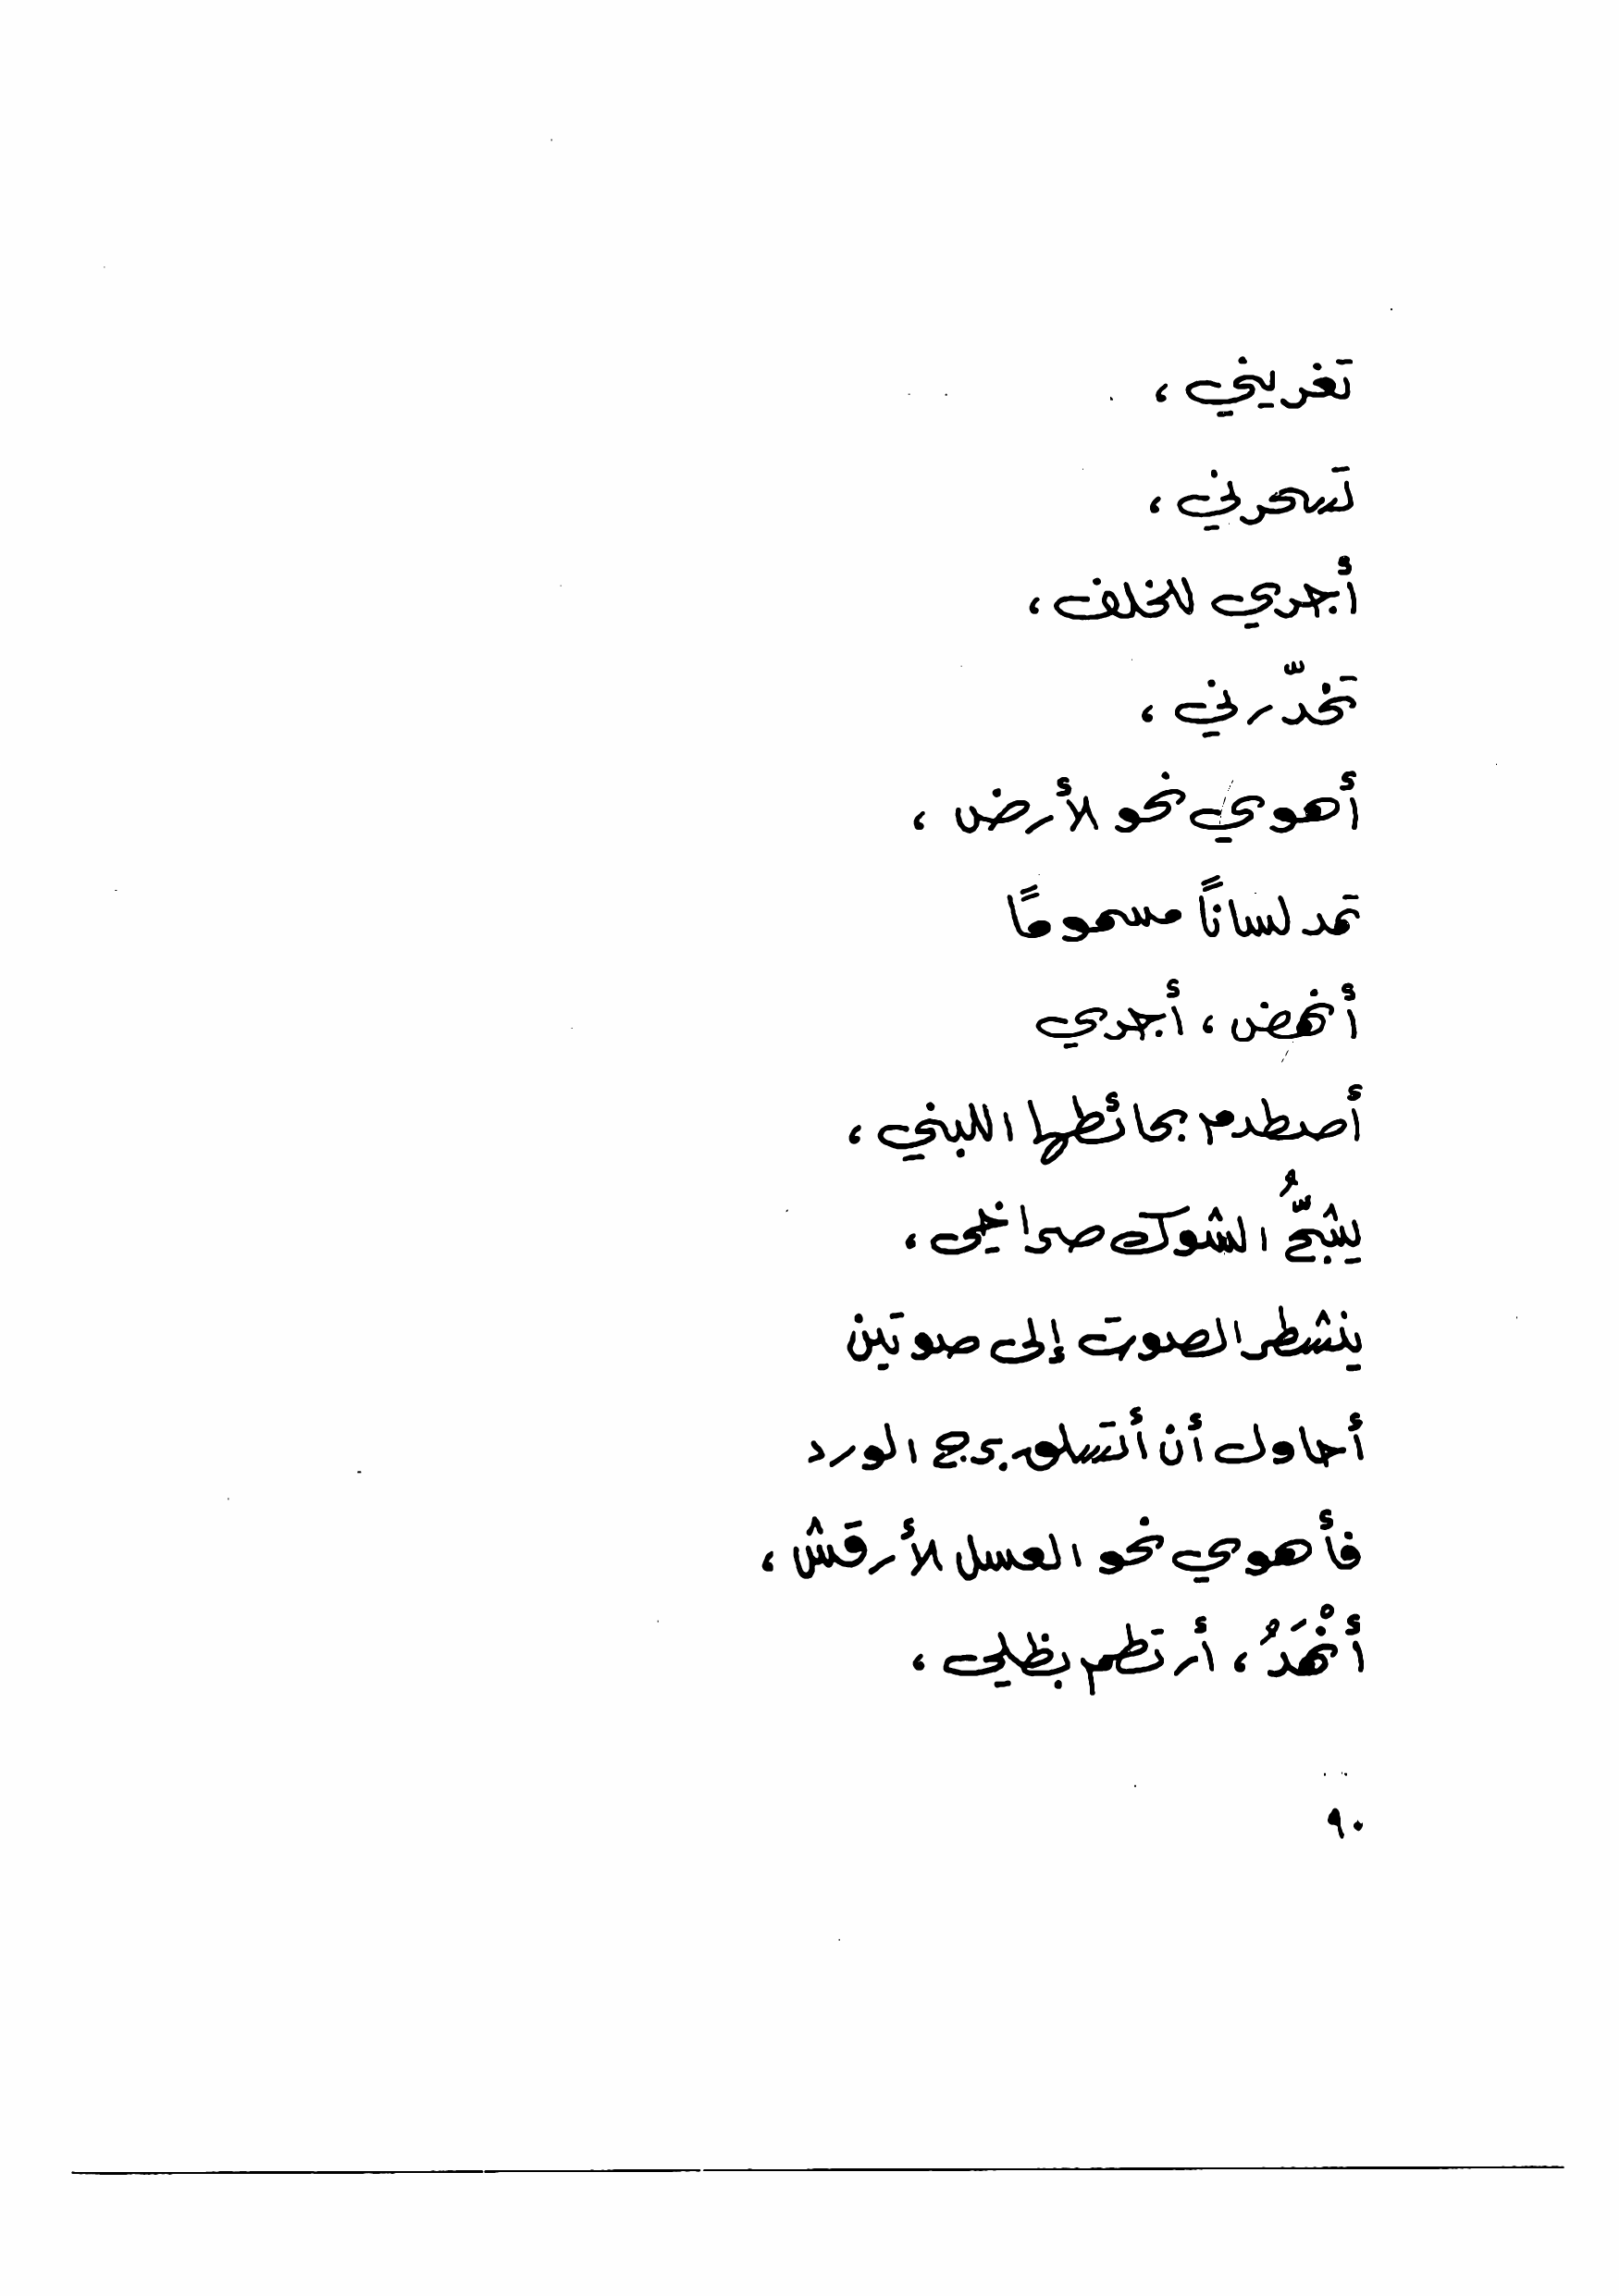 تغريني ،
تسحرني ،
أجري للخلف ،
تخدّرني ،
أهوي نحو الأرض ،
تمد لساناً مسموماً
أنهض ، أجري
أصطدم بحائطها اللبني ،
يشجُّ الشوك صراخي ،
ينشطر الصوت إلى صوتين
أحاول أن أتسلق برج الورد
فأهوي نحو العسل الأرقش ،
أنْهَدُ ، أرتطم بظلي ،
٩٠